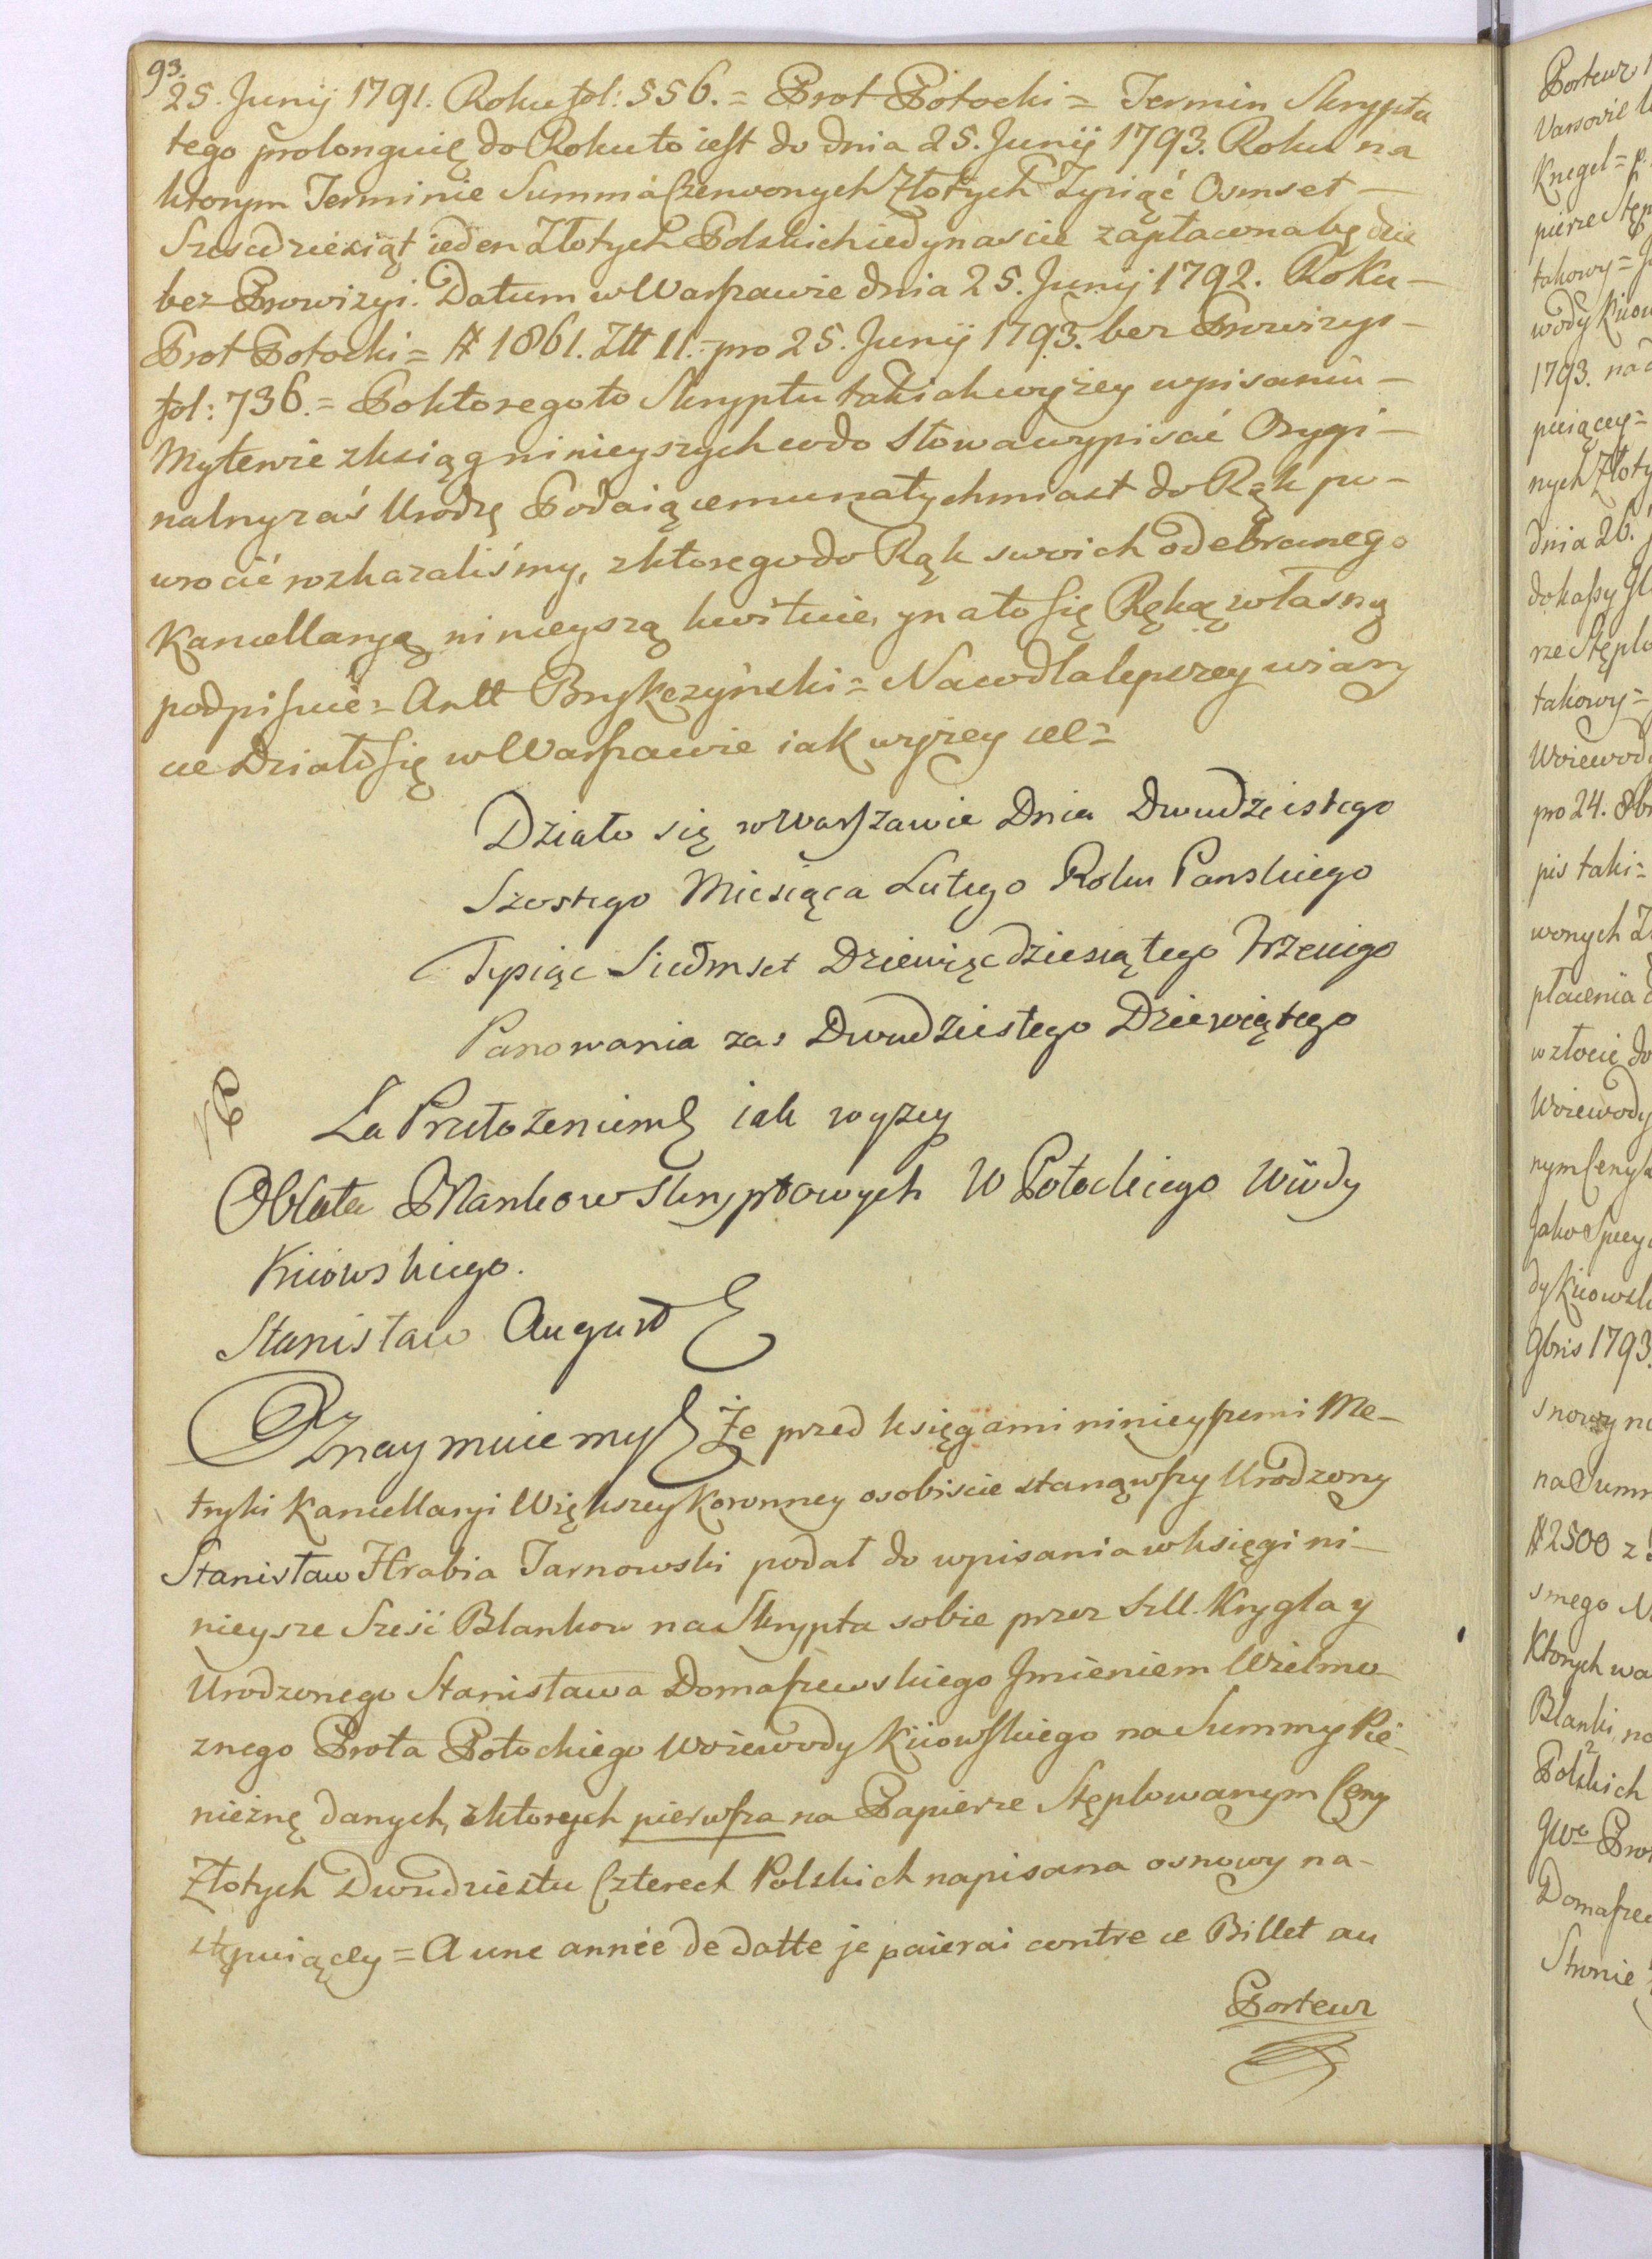 93.
25. Junij 1791. Roku fol: 556. = Prot Potocki = Termin Skryptu
tego prolonguię do Roku to iest do dnia 25. Junij 1793. Roku na
ktorym Terminie Summa Czerwonych Złotych Tysiąć Osmset -
Szescdziesiąt ieden Złotych Polskich iedynascie zapłacona będzie
bez Prowizyi. Datum w Warszawie dnia 25. Junij 1792. Roku -
Prot Potocki = # 1861. Złł 11. - pro 25. Junij 1793. bez Prowizyi -
fol: 736. = Po ktorego to Skryptu takich wyżey wpisaniu -
My tenże z ksiąg ninieyszych co do Słowa wypisać Orygi-
nalny zaś Urodzę Podaiącemu natychmiast do Rąk po-
wrocić rozkazaliśmy, z ktorego do Rąk swoich odebranego
Kancellaryą ninieyszą kwituie, y na to się Ręką własną
podpisuie = Antt Brykczyński = Na co dla lepszey wiary
etc Działo się w Warszawie iak wyżey etc =
Działo się w Warszawie Dnia Dwudziestego
Szostego Miesiąca Lutego Roku Panskiego
Tysiąc Siedmset Dziewięcdziesiątego Trzeciego
Panowania zas Dwudziestego Dziewiątego
Za Przełożeniem iak wyżey
Oblata Blankow Skryptowych W Potockiego Wdy
Kiiowskiego.
Stanisław August
Oznaymuiemy Że przed księgami ninieyszemi Me-
tryki Kancellaryi Większey Koronney osobiscie stanąwszy Urodzony
Stanisław Hrabia Tarnowski podał do wpisania w księgi ni-
nieysze Sześć Blankow na Skrypta sobie przez Szll. Krygla y
Urodzonego Stanisława Domaszewskiego Jmieniem Wielmo-
znego Prota Potockiego Woiewody Kiiowskiego na Summy Pie-
nieżnę danych, z ktorych pierwsza na Papierze Stęplowanym Ceny
Złotych Dwudziestu Czterech Polskich napisana osnowy na-
stępuiącey = A une année de datte je paierai contre ce Billet au
Porteur
Porteur
Varsovie
Knegel =
pierze Stęp
takowy =
wody Kiiow
1793. nad
puiącey =
nych Złoty
dnia 26.
do kassy
rze Stęplo
takowy =
Woiewod
pro 24. 8b
pis taki =
wonych
płacenia
w złocie do
Woiewody
nym Ceny
Jako
dy Kiiowsk
9bris 1793.
snowy na
na Summ
# 2500 z
smego
Ktorych wa
Blanki, na
Polskich
Prot
Domaszew
Stronie